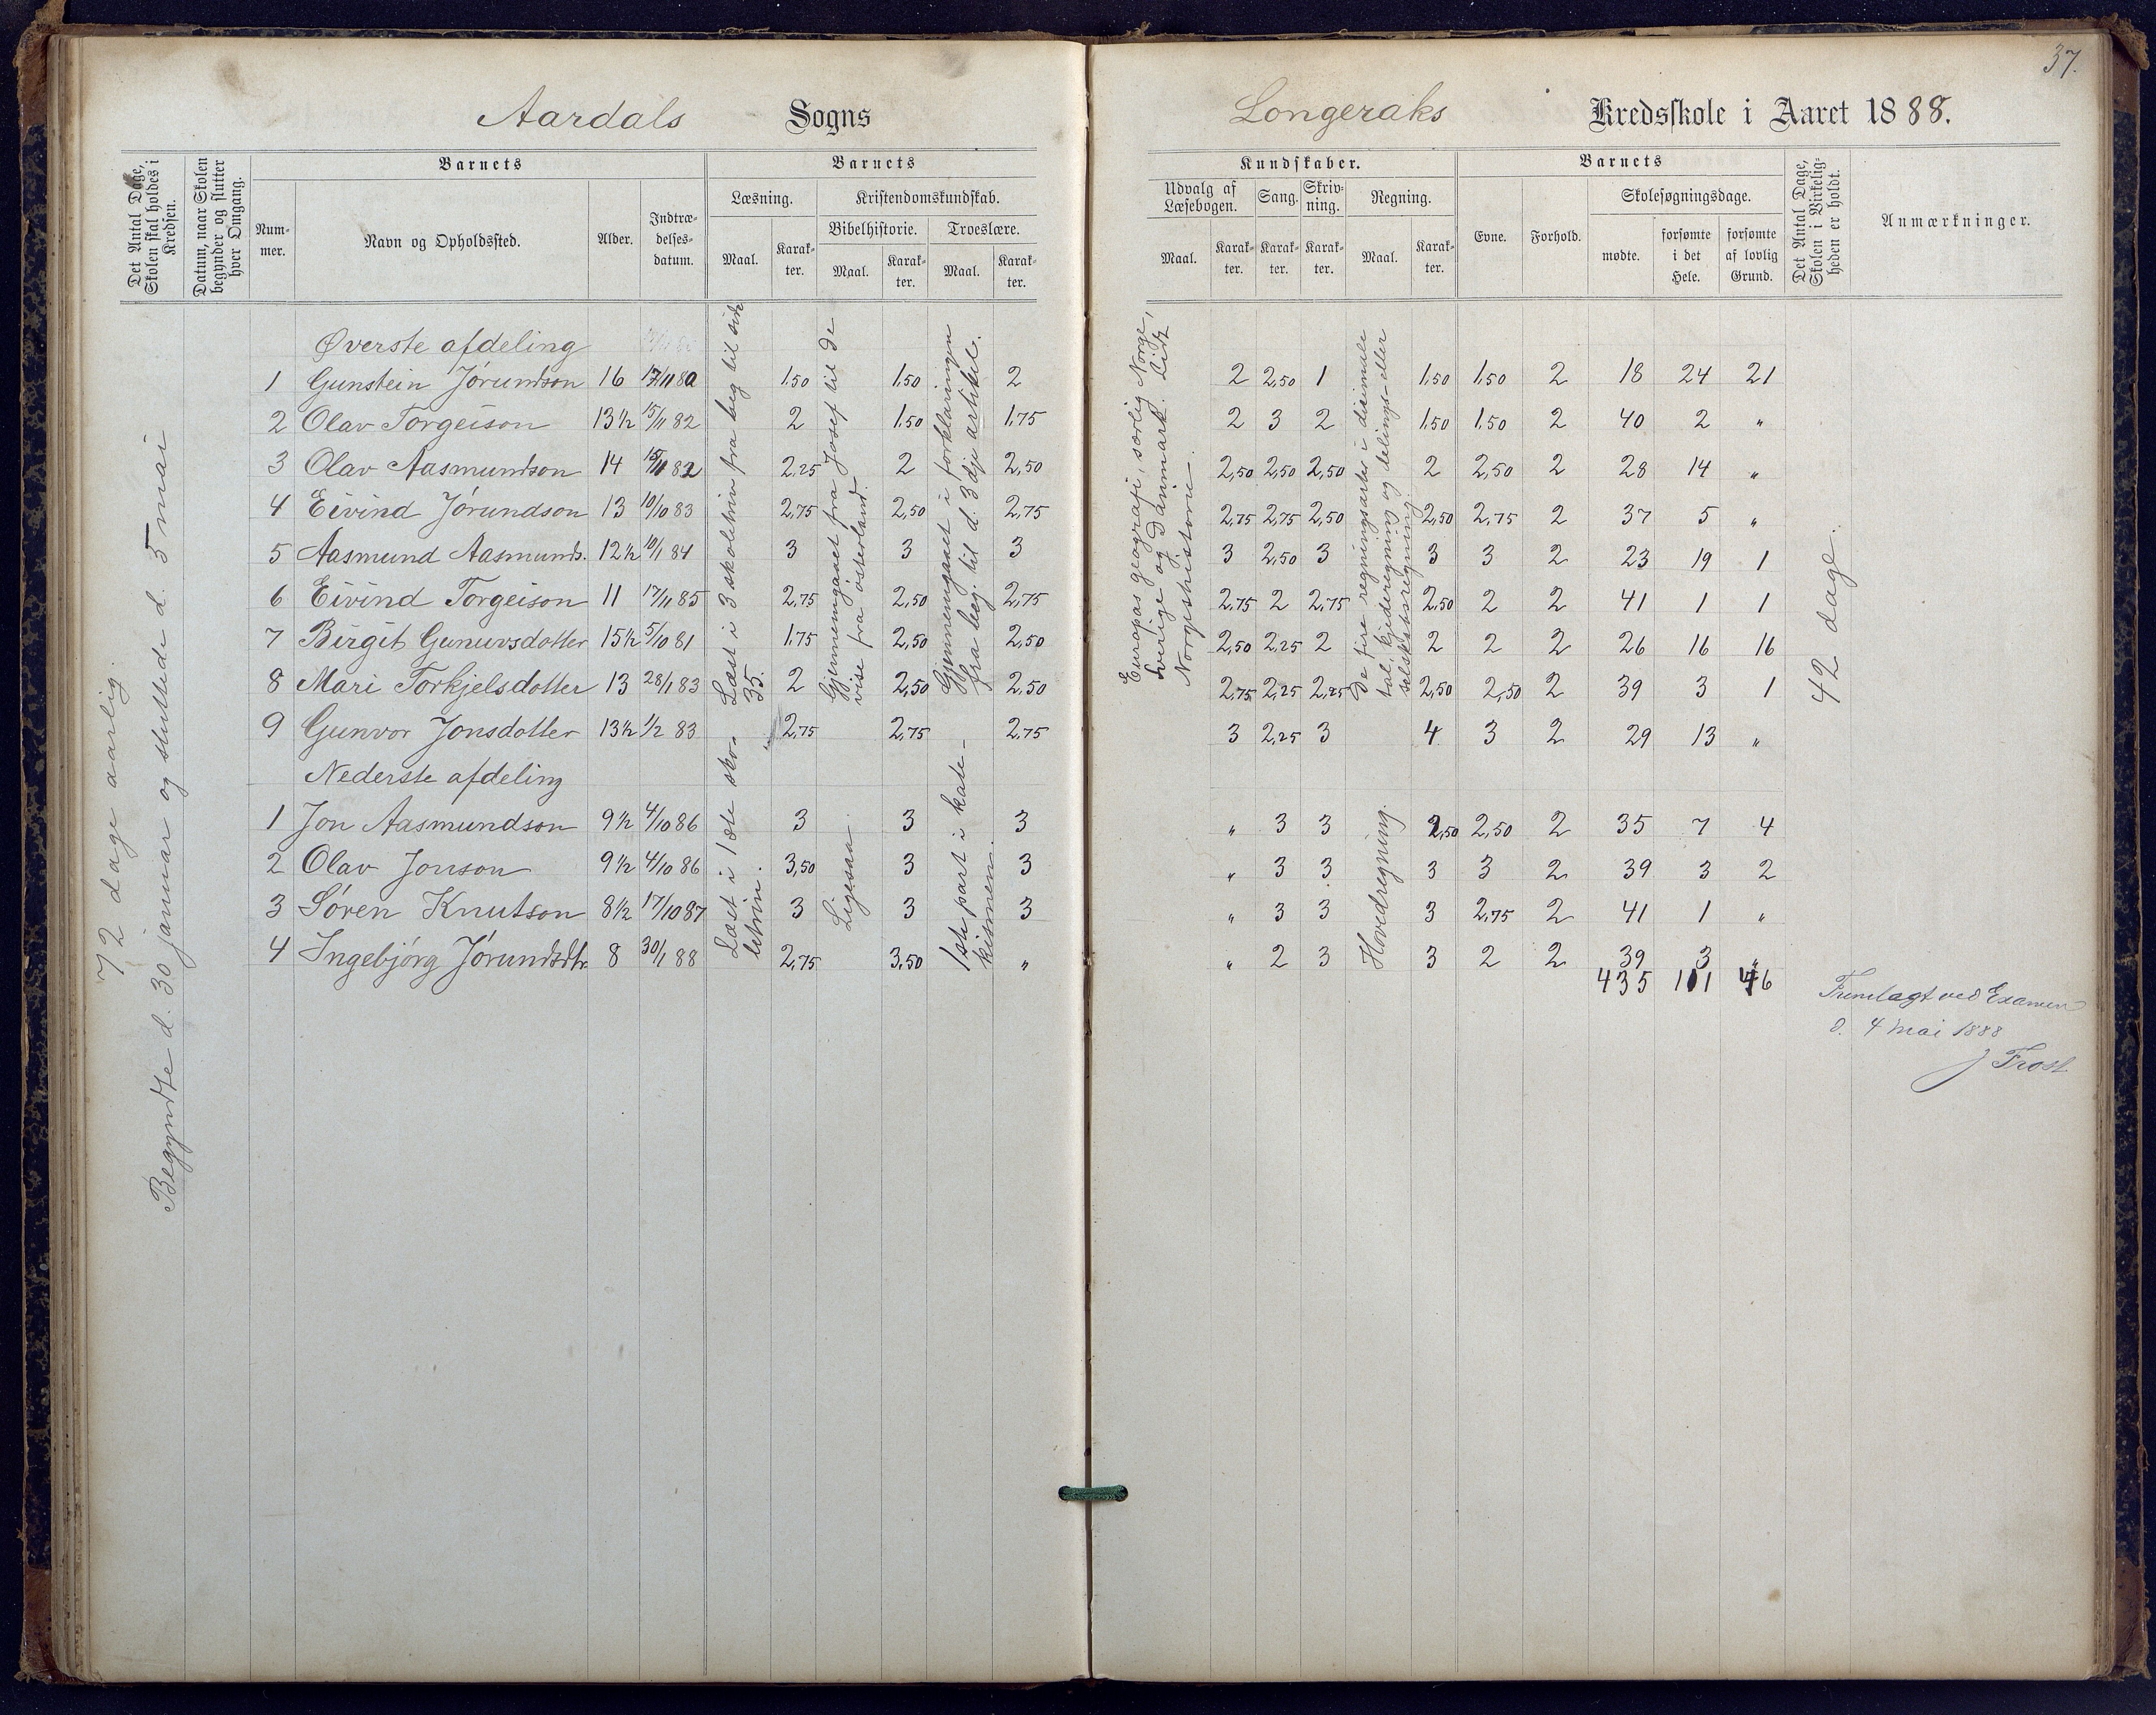 37.
Aardals Sogns Longeraks Kredsskole i Aaret 1888.
Det Antal Dage, Skolen skal holdes i Kredsen.
Datum, naar Skolen begynder og slutter hver Omgang.
Barnets
Nummer.
Navn og Opholdssted.
Alder.
Indtrædelsesdatum.
Barnets
Læsning.
Maal.
Karakter.
Kristendomskundskab.
Bibelhistorie.
Maal.
Karakter.
Troeslære.
Maal.
Karakter.
Kundskaber.
Udvalg af Læsebogen.
Maal.
Karakter.
Sang.
Karakter.
Skrivning.
Karakter.
Regning.
Maal.
Karakter.
Barnets
Evne.
Forhold.
Skolesøgningsdage.
mødte.
forsømte i det Hele.
forsømte af lovlig Grund.
Det Antal Dage, Skolen i Virkeligheden er holdt.
Anmærkninger.
72 dage aarlig.
Begyndte d. 30 januar og sluttede d. 5 mai
Øverste afdeling
1 Gunstein Jørundson 16 17/11 80 1,50 1,50 2 2 2,50 1 1,50 1,50 2 18 24 21
2 Olav Torgeison 13½ 15/11 82 2 1,50 1,75 2 3 2 1,50 1,50 2 40 2 "
3 Olav Aasmundson 14 15/11 82 2,25 2 2,50 2,50 2,50 2,50 2 2,50 2 28 14 "
4 Eivind Jørundson 13 10/10 83 2,75 2,50 2,75 2,75 2,75 2,50 2,50 2,75 2 37 5 "
5 Aasmund Aasmunds. 12½ 10/1 84 3 3 3 3 2,50 3 3 3 2 23 19 1
6 Eivind Torgeison 11 17/11 85 2,75 2,50 2,75 2,75 2 2,75 2,50 2 2 41 1 1
7 Birgit Gunuvsdotter 15½ 5/10 81 1,75 2,50 2,50 2,50 2,25 2 2 2 2 26 16 16
8 Mari Torkjelsdotter 13 28/1 83 2 2,50 2,50 2,75 2,25 2,25 2,50 2,50 2 39 3 1
9 Gunvor Jonsdotter 13½ 1/2 83 2,75 2,75 2,75 3 2,25 3 4 3 2 29 13 "
Læst i 3 skoletrin fra beg til side 35.
Gjennemgaaet fra Josef til de vise fra østerland.
Gjennemgaaet i forklaringen fra beg. til d. 3dje artikel.
Europas geografi, særlig Norge, Sverige og Danmark. Lidt Norgeshistorie.
De fire regningsarter i disimaltal, kjederegning og delings- eller selskabsregning.
42 dage.
Nederste afdeling
1 Jon Aasmundson 9½ 4/10 86 3 3 3 " 3 3 2,50 2,50 2 35 7 4
2 Olav Jonson 9½ 4/10 86 3,50 3 3 " 3 3 3 3 2 39 3 2
3 Søren Knutson 8½ 17/10 87 3 3 3 " 3 3 3 2,75 2 41 1 "
4 Ingebjørg Jørundsdtr. 8 30/1 88 2,75 3,50 " " 2 3 3 2 2 39 3 "
435 101 46
Læst i 1ste skoletrin.
Ligesaa.
1ste part i katekismen.
Hovedregning.
Fremlagt ved Examen
d. 4 mai 1888
J Frost